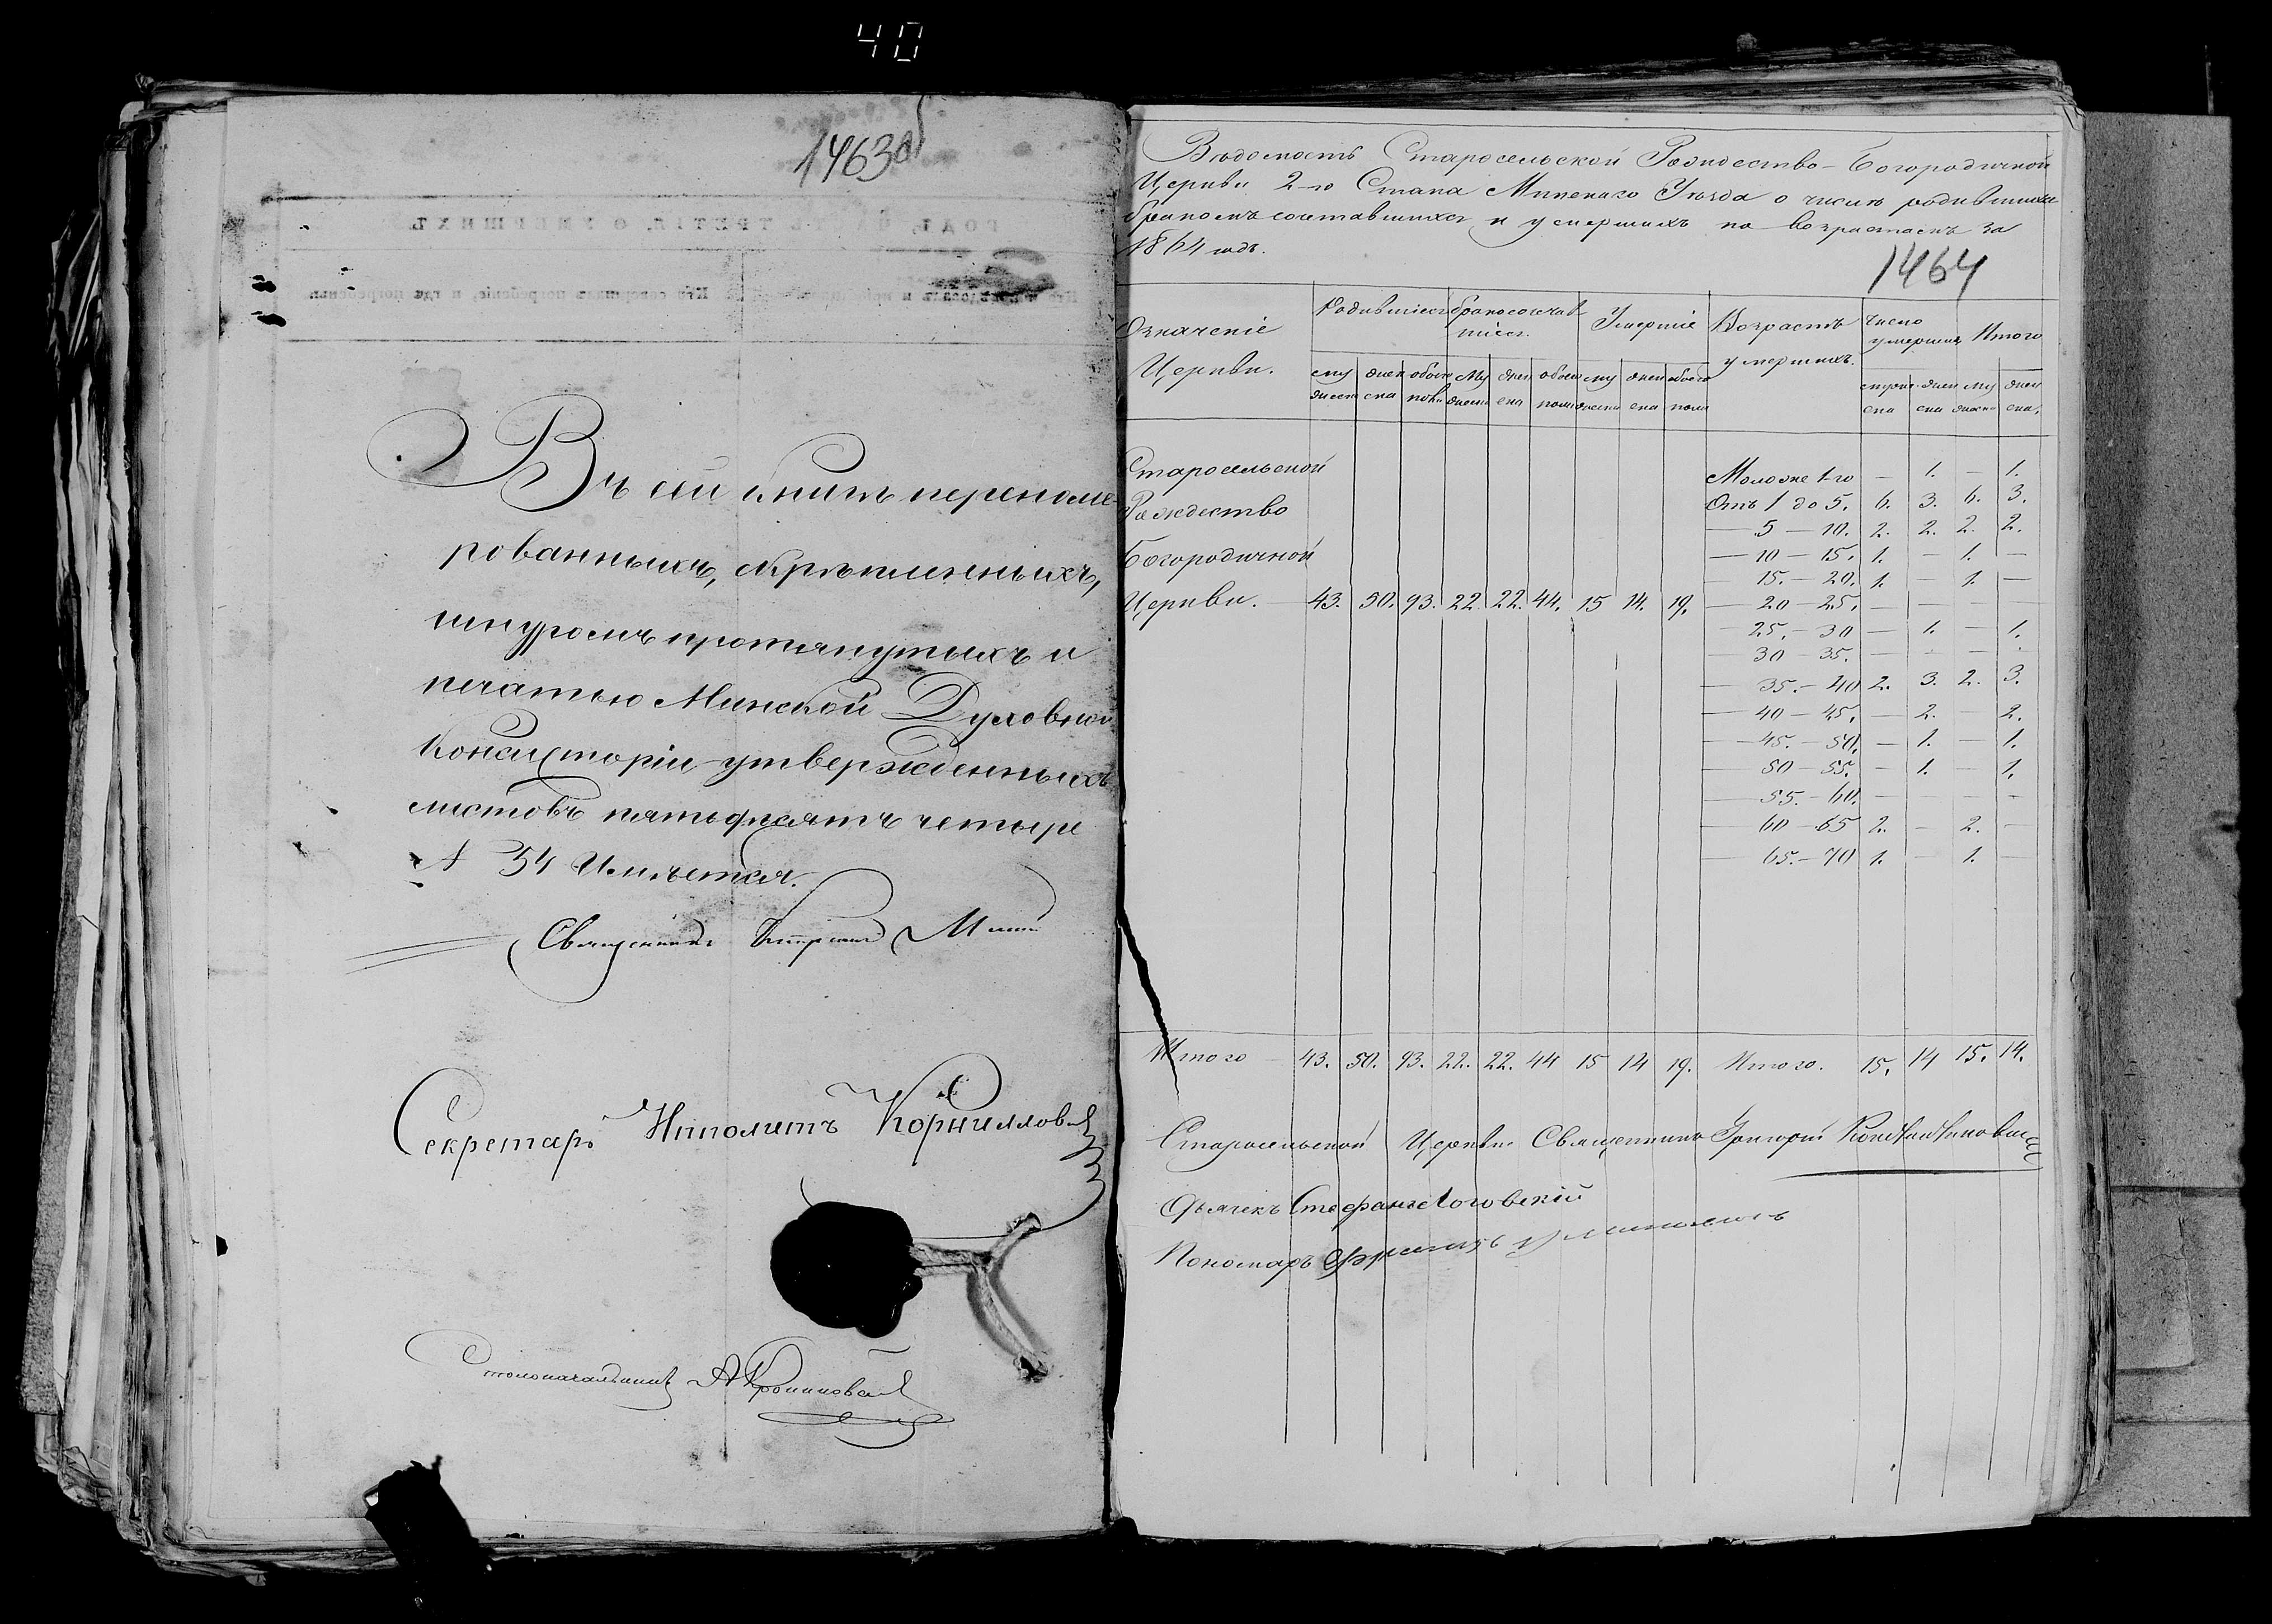 40
1463об
ГОДЪ, ЧАСТЬ ТРЕТІЯ, О УМЕРШИХЪ.
Кто совершалъ погребеніе, и гдѣ погребены.
Въ сей книгѣ перенуме-
рованныхъ, скрѣпленныхъ,
шнуромъ протянутыхъ и
печатью Минской Духовной
Консисторіи утвержденныхъ
листовъ пятьдесятъ четыре
№ 54 Имѣется.
Священникъ
Секретарь Ипполитъ Корнилловичъ
Столоначальникъ А
Вѣдомость Старосельской Рождество-Богородичной
Церкви 2-го Стана Минскаго Уѣзда о числѣ родившихся
бракомъ сочетавшихся и умершихъ по возрастамъ за
1864 годъ.
1464
Означеніе Церкви. Родившіеся бракосочетавшіеся Умершіе Возрастъ умершихъ. Число умершихъ Итого
мужеска женска обоего пола мужеска женска обоего пола мужеска женска обоего пола мужеска женска мужеска женска
Старосельской Моложе 1-го — 1. — 1.
Рождество Отъ 1 до 5. 6. 3. 6. 3.
— 5 — 10. 2. 2. 2. 2.
Богородичной — 10 — 15. 1. — 1. —
— 15. — 20. 1. — 1. —
Церкви. — 43. 50. 93. 22. 22. 44. 15 14. 19. — 20 — 25. — — — —
— 25. — 30 — 1. — 1.
— 30 — 35. — — — —
— 35. — 40 2. 3. 2. 3.
— 40 — 45. — 2. — 2.
— 45. — 50. — 1. — 1.
— 50 — 55. — 1. — 1.
— 55. — 60. — — — —
— 60 — 65 2. — 2. —
— 65. — 70 1. — 1. —
Итого — 43. 50. 93. 22. 22. 44 15 14 19. Итого. 15. 14 15. 14.
Старосельской Церкви Священникъ Григорій Константиновичъ
Дьячекъ Стефанъ Логовскій
Пономарь